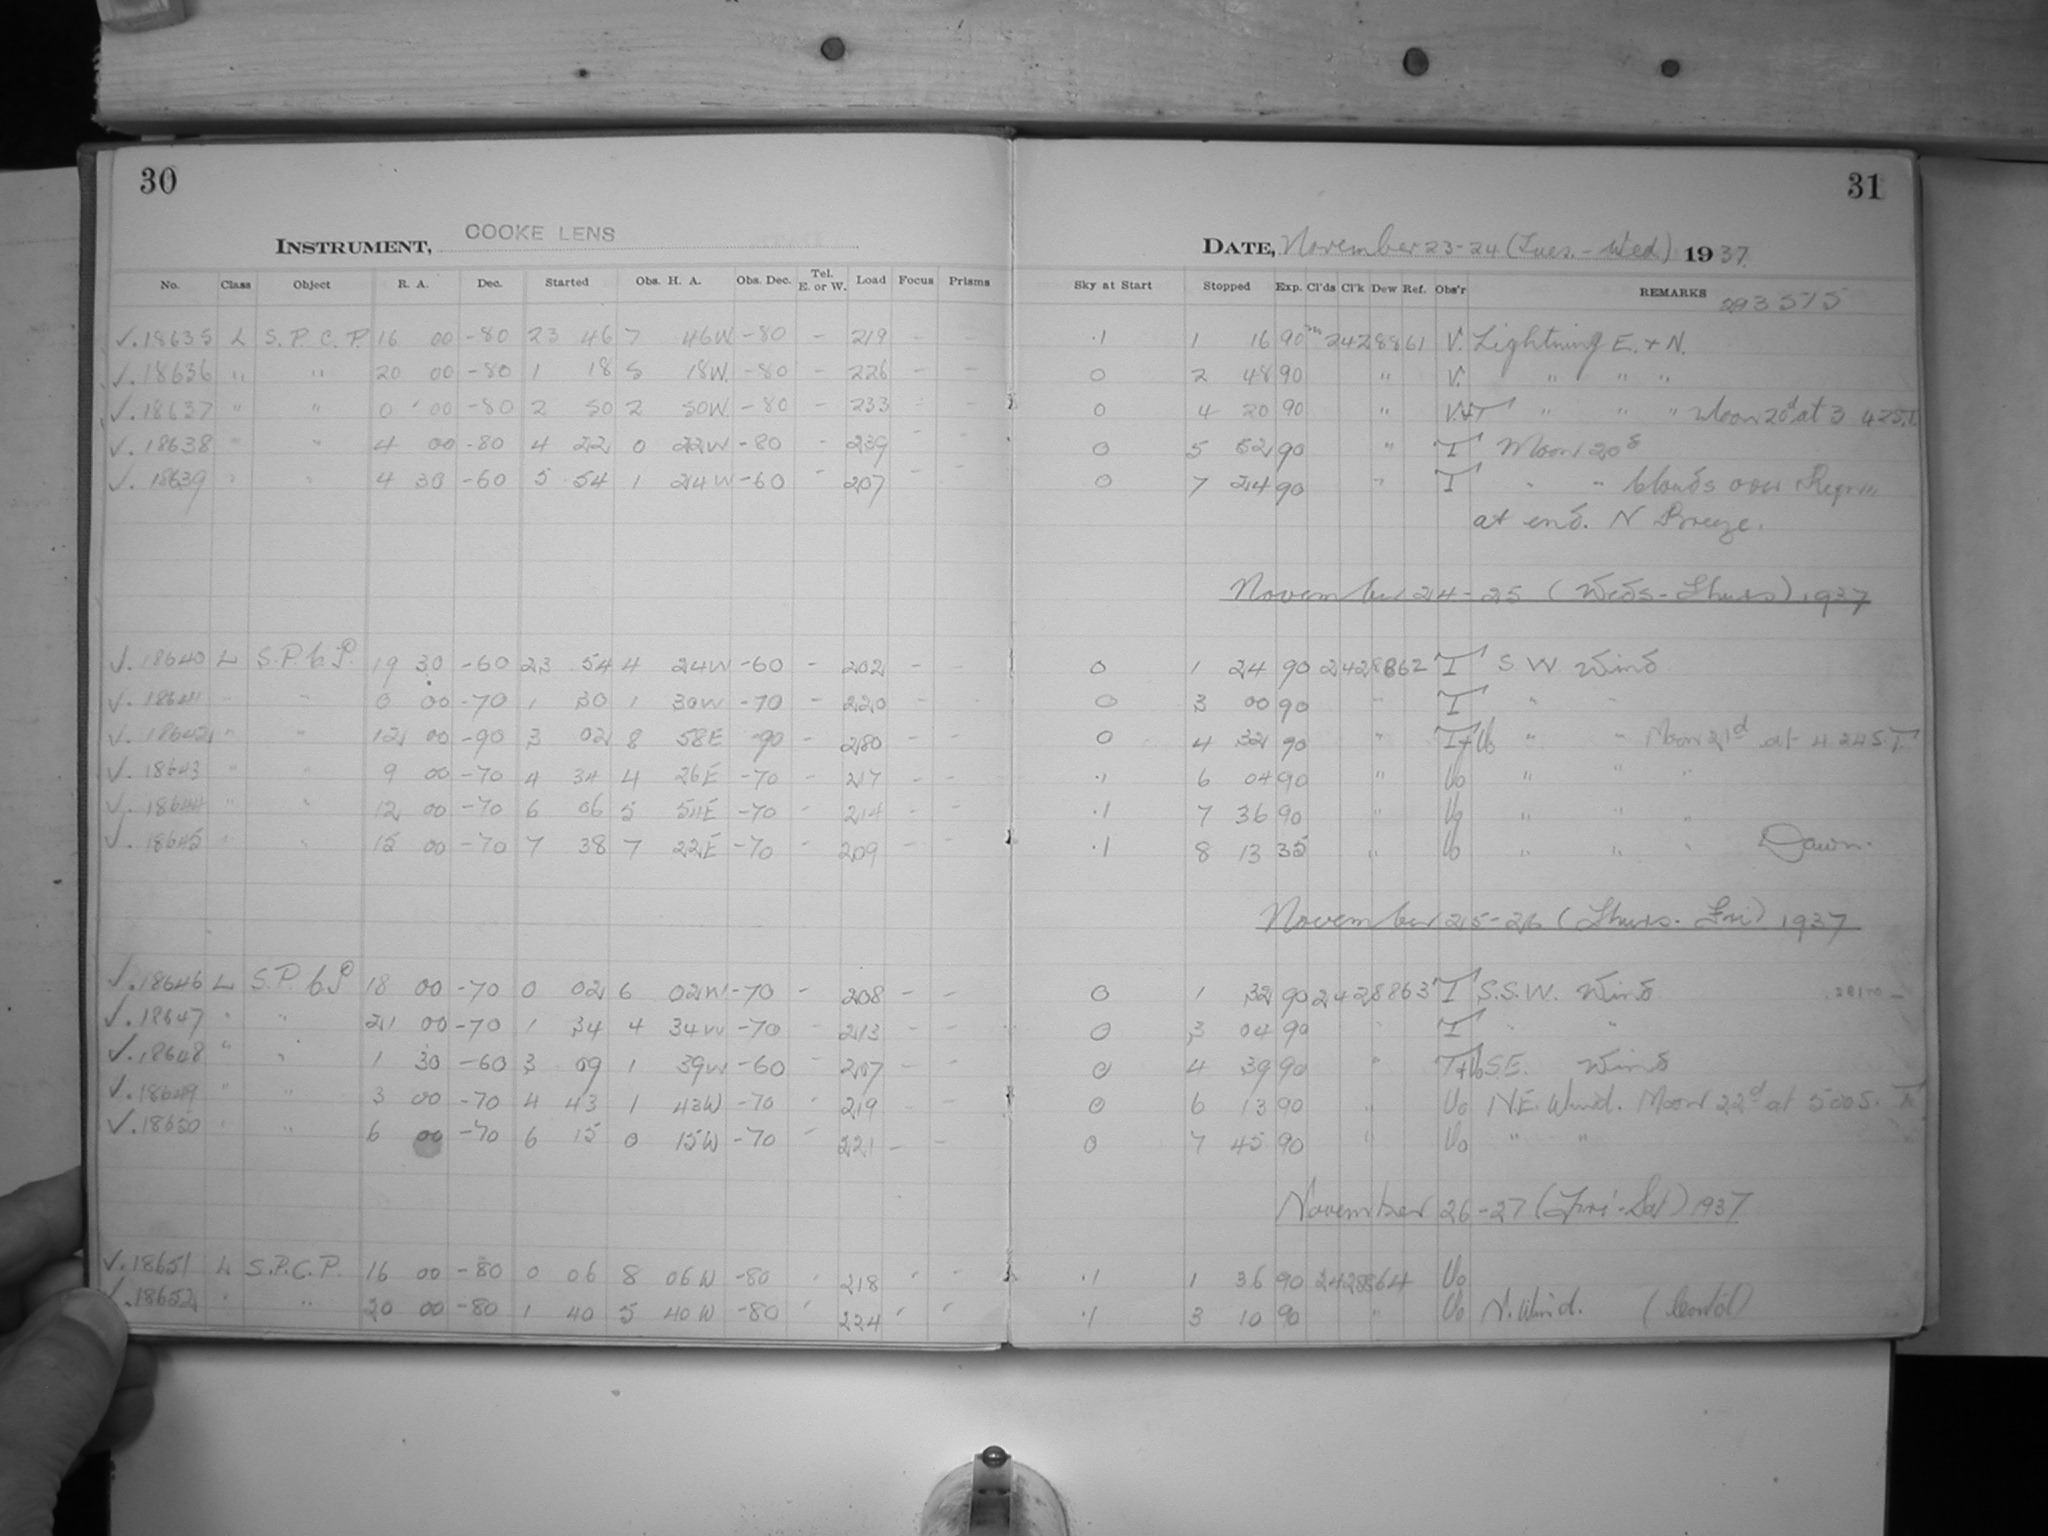 30
31
INSTRUMENT, COOKE LENS
DATE, November 23-24 (Tues. - Wed) 1937.
No. Class Object R. A. Dec. Started Obs. H. A. Obs. Dec. Tel. E. or W. Load Focus Prisms Sky at Start Stopped Exp. Cl'ds Cl'k Dew Ref. Obs'r REMARKS
293515
√.18635 L S.P.C.P. 16 00 -80 23 46 7 46W -80 - 219 - - .1 1 16 90m 2428861 V. Lightning E. + N.
√.18636 " " 20 00 -80 1 18 5 18W. -80 - 226 - - 0 2 48 90 " V. " " "
√.18637 " " 0 00 -80 2 50 2 50W -80 - 233 - - 0 4 20 90 " V.+T " " " Moon 20d at 3 42 S.T.
√.18638 " " 4 00 -80 4 22 0 22W -80 - 239 - - 0 5 52 90 " T Moon 20d
√.18639 " " 4 30 -60 5 54 1 24W -60 - 207 - - 0 7 24 90 " T " " Clouds over
at end. N Breeze.
November 24-25 (Weds-Thurs) 1937
√.18640 L S.P.C.P. 19 30 -60 23 54 4 24W -60 - 202 - - 0 1 24 90 2428862 T S.W. Wind
√.18641 " " 0 00 -70 1 30 1 30W -70 - 220 - - 0 3 00 90 " T " "
√.18642 " " 12 00 -90 3 02 8 58E -90 - 280 - - 0 4 32 90 " T+Uo " " Moon 21d at 4 24 S.T.
√.18643 " " 9 00 -70 4 34 4 26E -70 - 217 - - .1 6 04 90 " Uo " " "
√.18644 " " 12 00 -70 6 06 5 54E -70 - 214 - - .1 7 36 90 " Uo " " "
√.18645 " " 15 00 -70 7 38 7 22E -70 - 209 - - .1 8 13 35 " Uo " " " Dawn.
November 25-26 (Thurs. Fri) 1937
√.18646 L S.P.C.P 18 00 -70 0 02 6 02W -70 - 208 - - 0 1 32 90 2428863 T S.S.W. Wind
√.18647 " " 21 00 -70 1 34 4 34W -70 - 213 - - 0 3 04 90 " T " "
√.18648 " " 1 30 -60 3 09 1 39W -60 - 207 - - 0 4 39 90 " T+Uo S.E. Wind
√.18649 " " 3 00 -70 4 43 1 43W -70 - 219 - - 0 6 13 90 " Uo N.E. Wind. Moon 22d at 5 00 S.T.
√.18650 " " 6 00 -70 6 15 0 15W -70 - 221 - - 0 7 45 90 " Uo " "
November 26-27 (Fri-Sat) 1937
√.18651 L S.P.C.P. 16 00 -80 0 06 8 06W -80 ' 218 ' ' .1 1 36 90 2428864 Uo
√.18652 " " 20 00 -80 1 40 5 40W -80 ' 224 ' ' .1 3 10 90 " Uo N. Wind. (Cont'd)